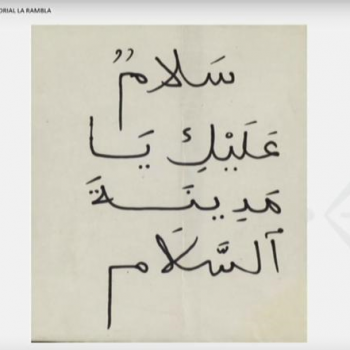 ORIAL LA RAMBLA
سَلامٌ
عَلَيْكِ يَا
مَدِينَةَ
ٱلسَّلَام